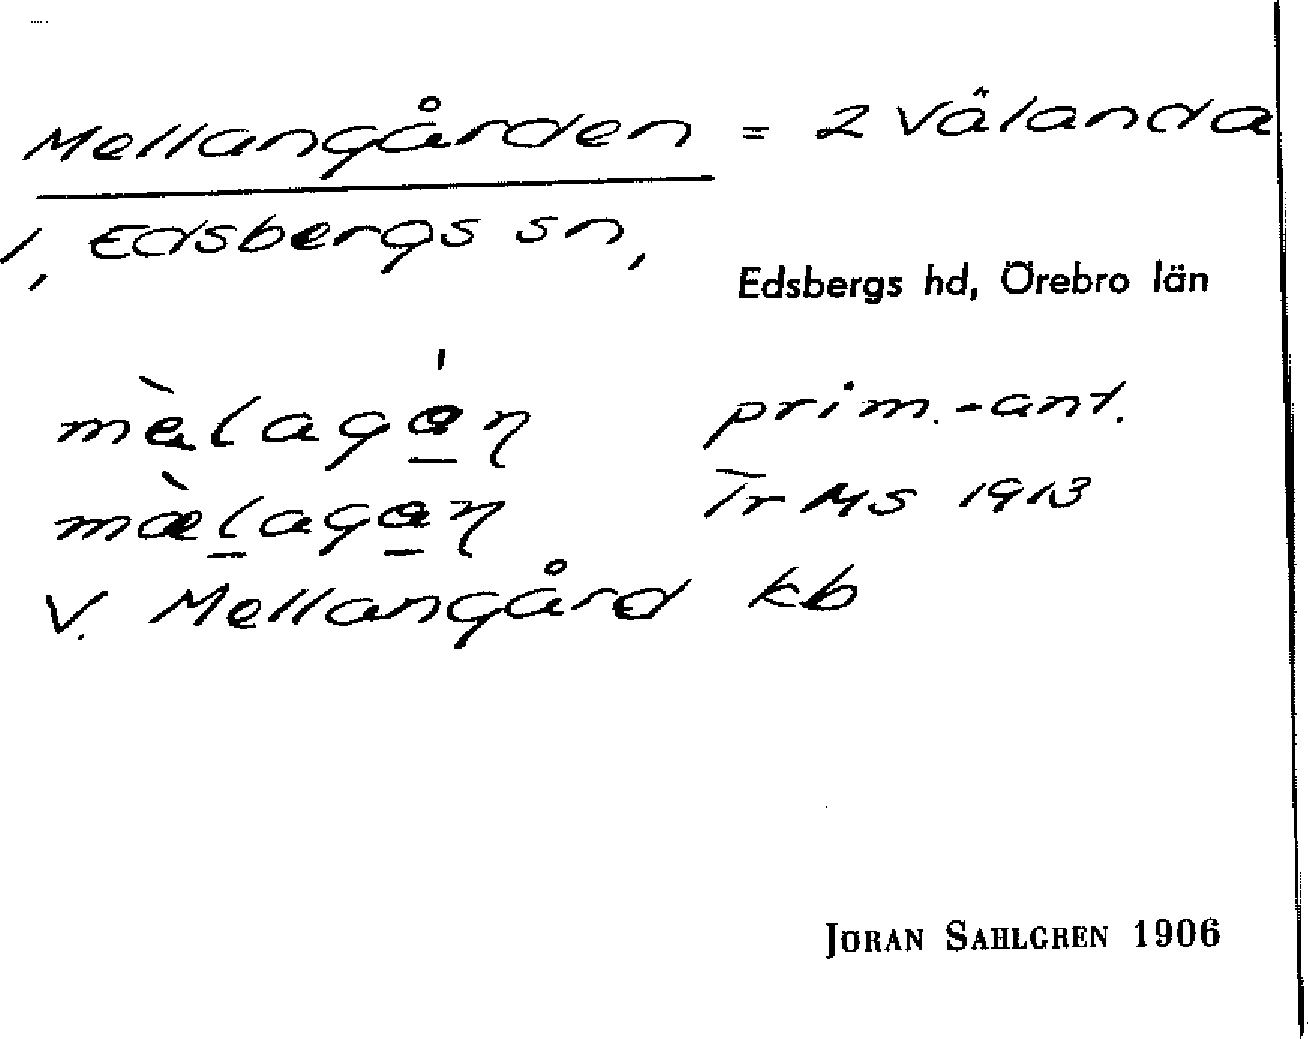 Mellangården = 2 Välanda
1, Edsbergs sn,
Edsbergs hd, Örebro län
prim.-ant.
Tr MS 1913
V. Mellangård kb
JÖRAN SAHLGREN 1906